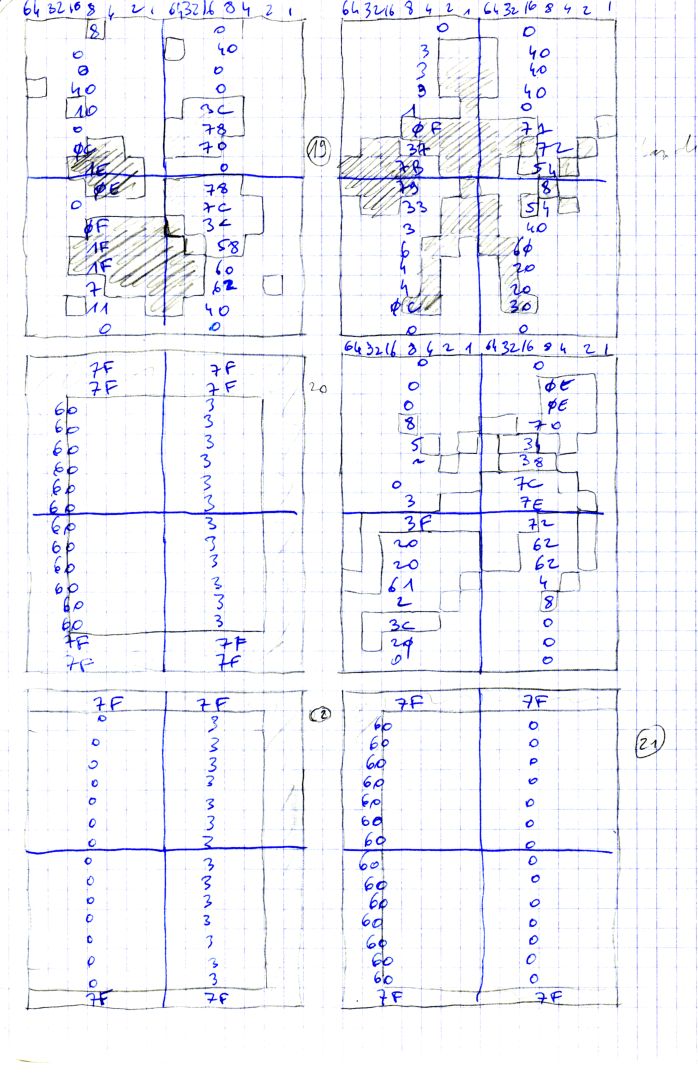 64 32 16 8 4 2 1 64 32 16 8 4 2 1
8 0
0 40
0 0
40 0
10 3C
0 78
0C 70
1E 0
0E 78
0 7C
0F 3C
1F 58
1F 60
7 62
11 40
0 0
64 32 16 8 4 2 1 64 32 16 8 4 2 1
0 0
3 40
3 40
9 40
1 0
0F 71
37 72
7B 54
79 8
33 54
3 40
6 60
4 20
4 20
0C 30
0 0
19
7F 7F
7F 7F
60 3
60 3
60 3
60 3
60 3
60 3
60 3
60 3
60 3
60 3
60 3
60 3
7F 7F
7F 7F
20
64 32 16 8 4 2 1 64 32 16 8 4 2 1
0 0
0 0E
0 0E
8 70
5 34
38
0 7C
3 7E
3F 72
20 62
20 62
61 4
2 8
3C 0
20 0
0 0
7F 7F
0 3
0 3
0 3
0 3
0 3
0 3
0 3
0 3
0 3
0 3
0 3
0 3
0 3
0 3
7F 7F
7F 7F
60 0
60 0
60 0
60 0
60 0
60 0
60 0
60 0
60 0
60 0
60 0
60 0
60 0
60 0
7F 7F
21